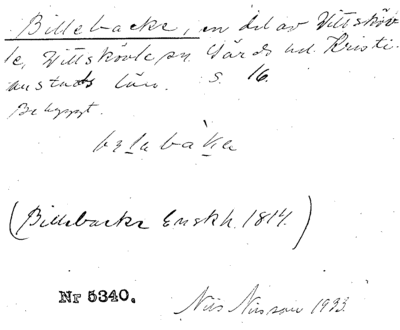 Billebacke, en del av Vittsköv
le, Vittskövle sn. Gärds hd. Kristi-
anstads län. s. 16.
Bebyggt.
belabàka
(Billebacke Enskh. 1814.)
Nr 5340.
Nils Nilsson 1933.